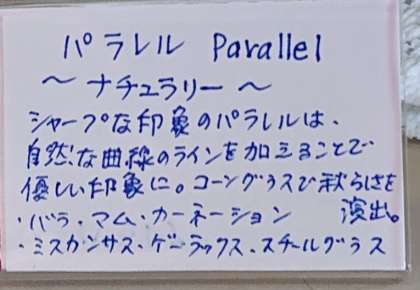 パラレル Parallel
～ナチュラリー～
シャープな印象のパラレルは、
自然な曲線のラインを加えることで
優しい印象に。コーングラスで秋らしさを
演出。
・バラ・マム・カーネーション
・ミスカンサス・ゲーラックス・スチールグラス